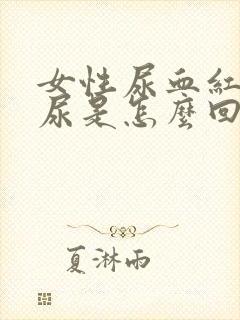 女性尿血紅
尿是怎麼回
夏淋雨